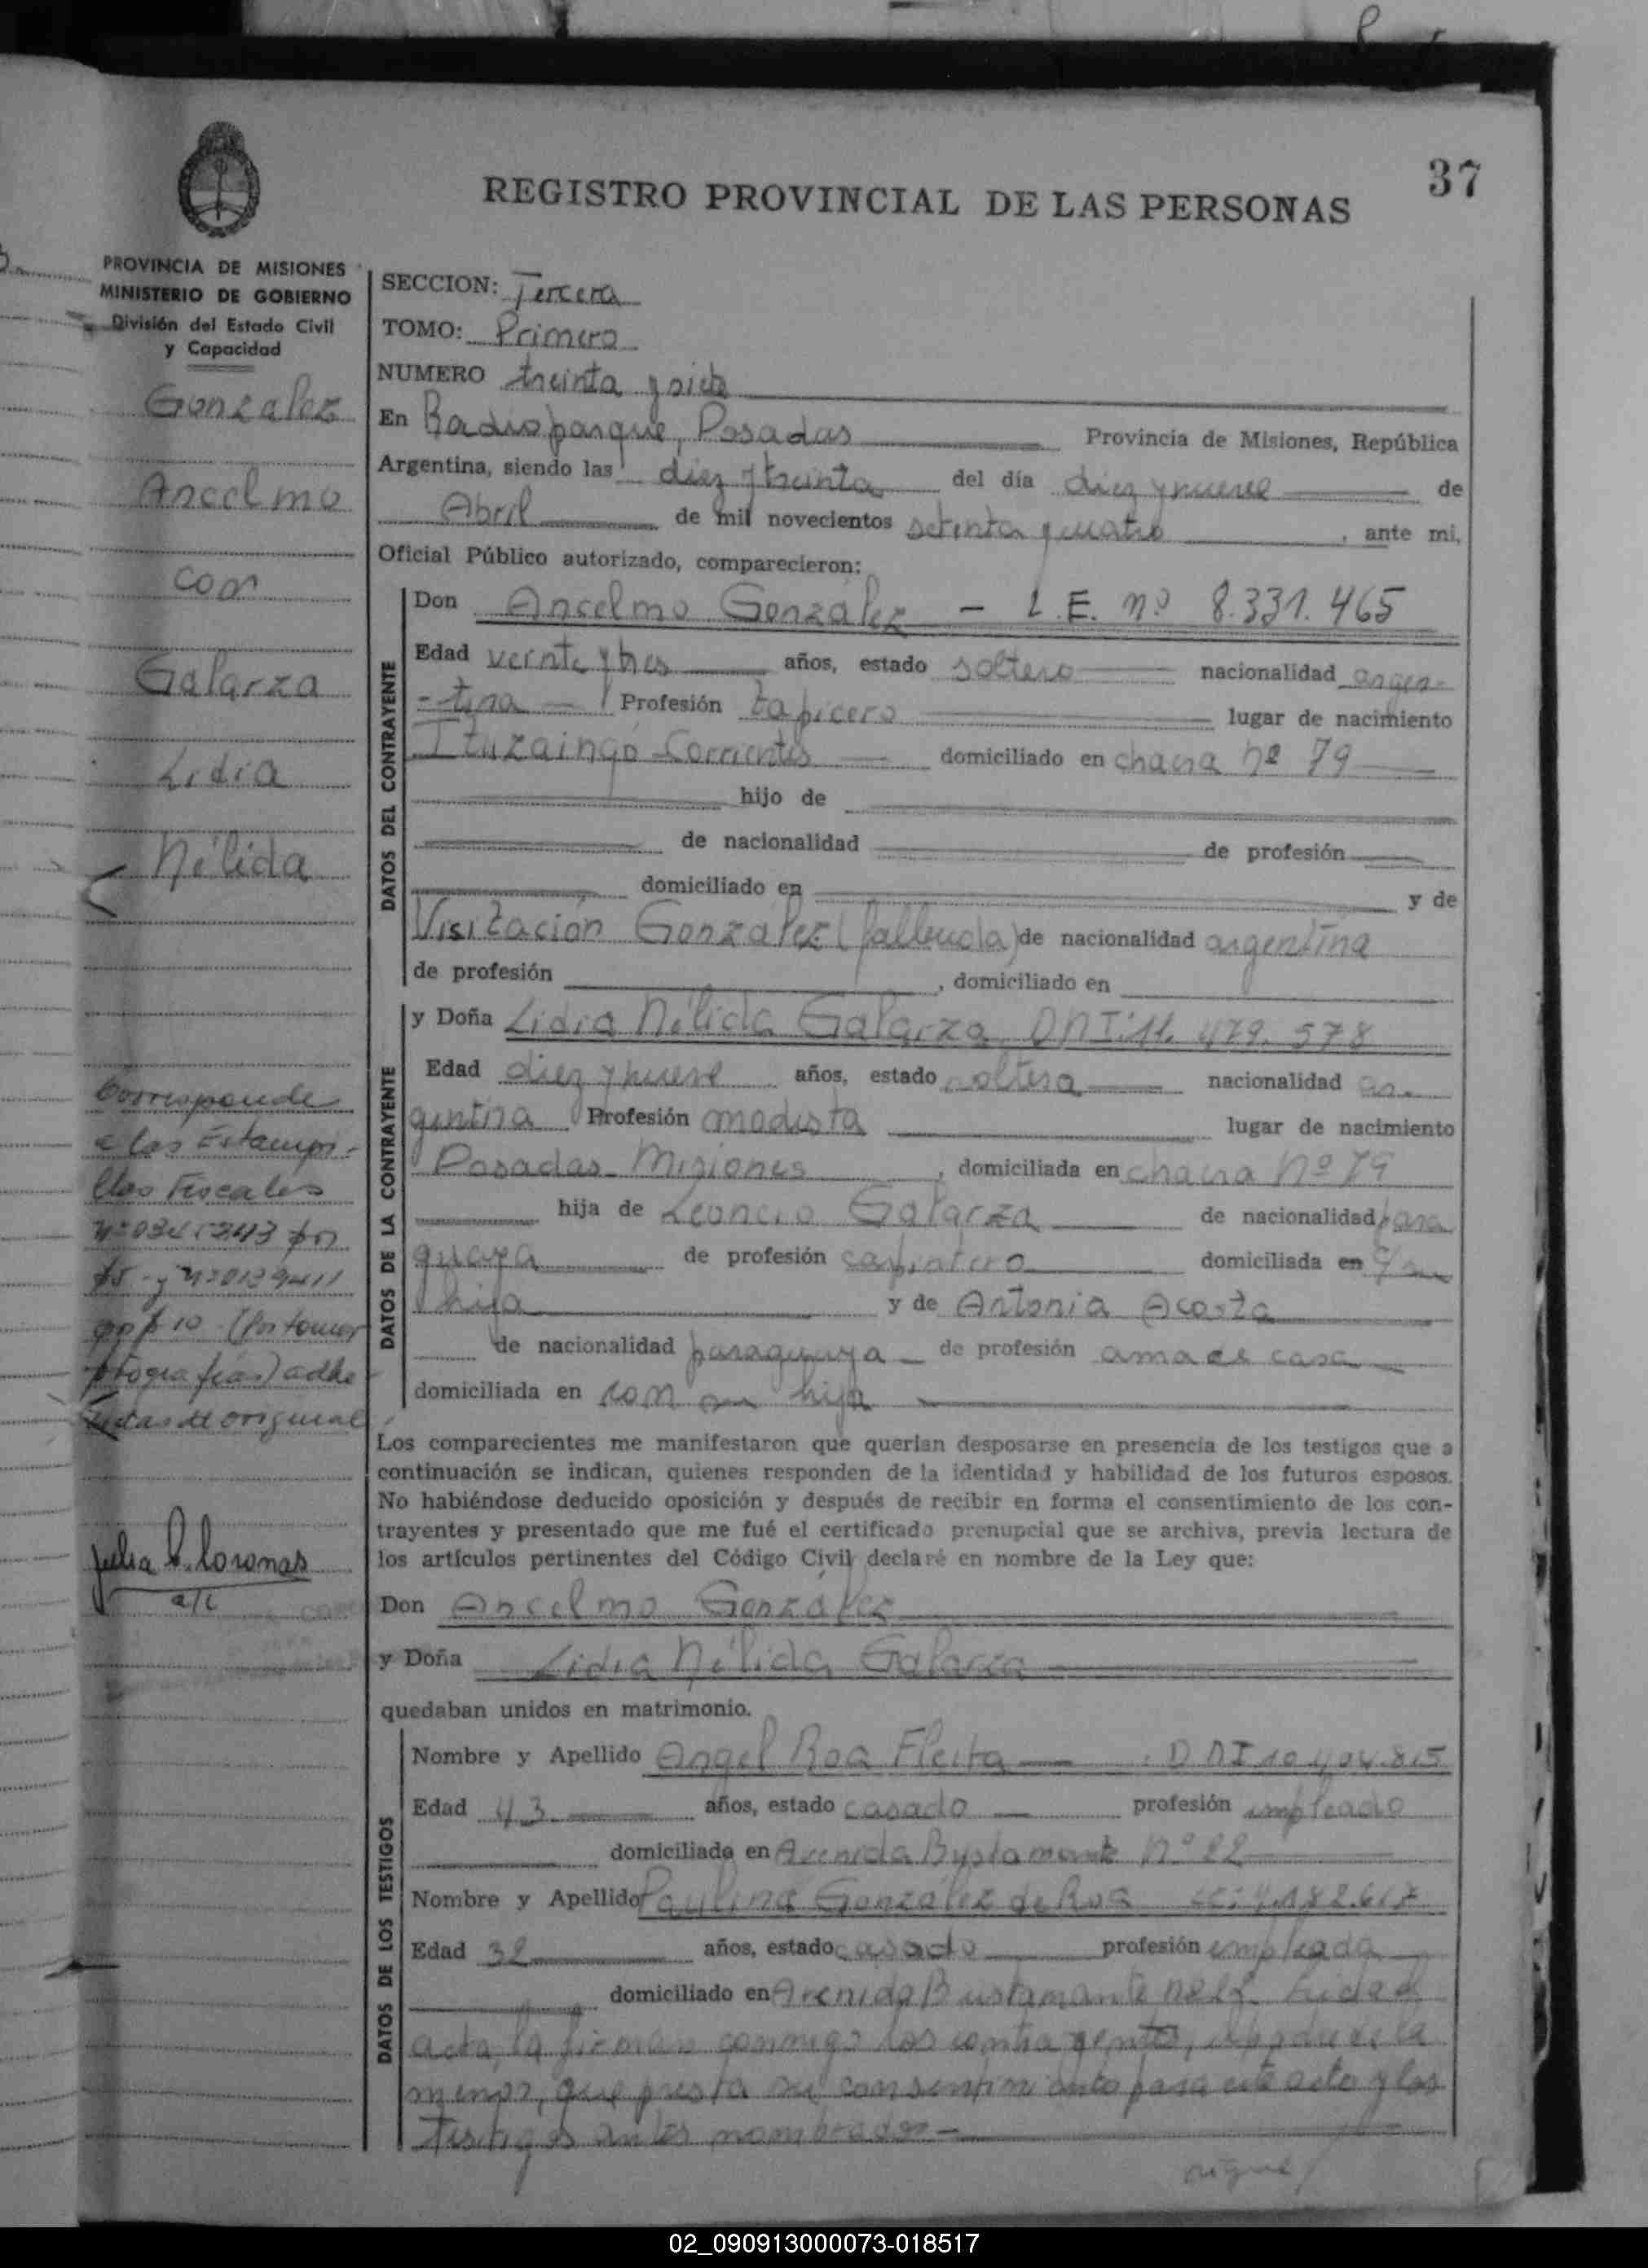 37
REGISTRO PROVINCIAL DE LAS PERSONAS
PROVINCIA DE MISIONES
MINISTERIO DE GOBIERNO
División del Estado Civil
y Capacidad
Gonzalez
Anselmo
con
Galarza
Lidia
Nélida
Corresponde
a las Estampi-
llas Fiscales
adhe
original
Julia Coronas
a/c
SECCION: Tercera
TOMO: Primero
NUMERO treinta y siete
En Radioparque, Posadas Provincia de Misiones, República
Argentina, siendo las diez y treinta del día diez y nueve de
Abril de mil novecientos setenta y cuatro, ante mi,
Oficial Público autorizado, comparecieron:
DATOS DEL CONTRAYENTE
Don Anselmo González - L.E. nº 8.331.465
Edad veinte y tres años, estado soltero nacionalidad argen-
-tina Profesión tapicero lugar de nacimiento
Ituzaingó-Corrientes domiciliado en chacra nº 79
hijo de
de nacionalidad de profesión
domiciliado en y de
Visitación González (fallecida) de nacionalidad argentina
de profesión , domiciliado en
DATOS DE LA CONTRAYENTE
y Doña Lidia Nélida Galarza DNI: 11.479.578
Edad diez y nueve años, estado soltera nacionalidad ar-
gentina Profesión modista lugar de nacimiento
Posadas-Misiones, domiciliada en chacra Nº 79
hija de Leoncio Galarza de nacionalidad para
guaya de profesión carpintero domiciliada en c/su
hija y de Antonia Acosta
de nacionalidad paraguaya de profesión ama de casa
domiciliada en con su hija
Los comparecientes me manifestaron que querían desposarse en presencia de los testigos que a
continuación se indican, quienes responden de la identidad y habilidad de los futuros esposos.
No habiéndose deducido oposición y después de recibir en forma el consentimiento de los con-
trayentes y presentado que me fué el certificado prenupcial que se archiva, previa lectura de
los artículos pertinentes del Código Civil declaré en nombre de la Ley que:
Don Anselmo González
y Doña Lidia Nélida Galarza
quedaban unidos en matrimonio.
DATOS DE LOS TESTIGOS
Nombre y Apellido Angel Roa Fleita DNI
Edad 43 años, estado casado profesión empleado
domiciliado en Avenida Bustamante Nº 22
Nombre y Apellido Paulina González de Roa
Edad 32 años, estado casado profesión empleada
domiciliado en Avenida Bustamante
acta, la firman conmigo los contrayentes, el padre de la
menor, que presta su consentimiento para este acto y los
testigos antes nombrados.-
sigue/
02_090913000073-018517